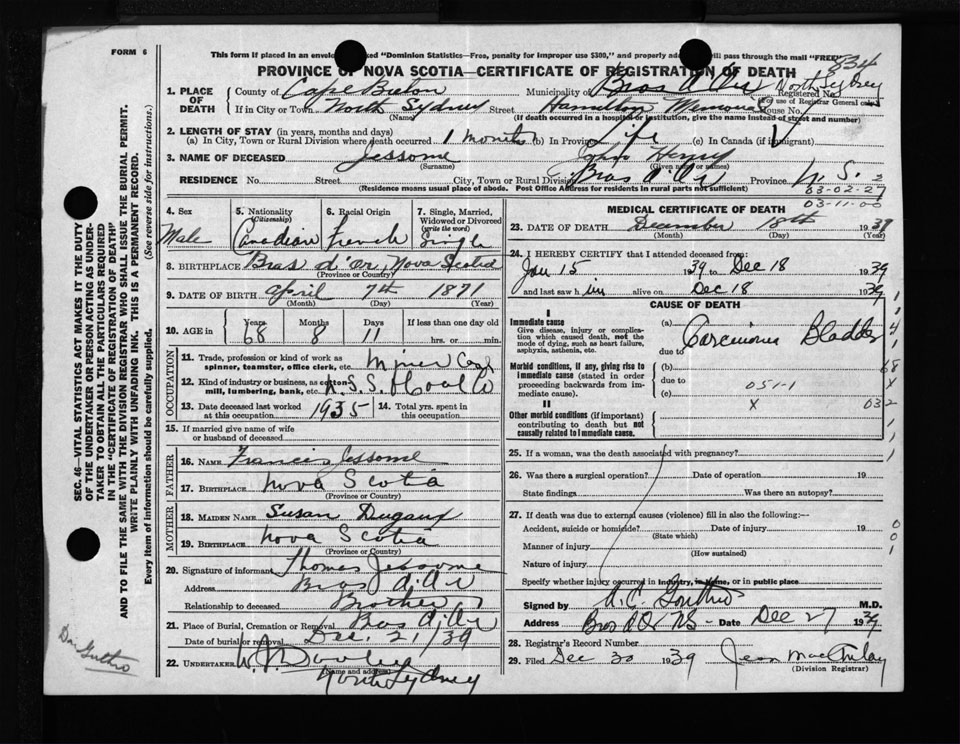 FORM 6
This form if placed in an envelope marked "Dominion Statistics—Free, penalty for improper use $300," and properly addressed will pass through the mail "FREE"
334
PROVINCE OF NOVA SCOTIA—CERTIFICATE OF REGISTRATION OF DEATH
1. PLACE OF DEATH
County of Cape Breton Municipality of Bras d'Or North Sydney Registered No.
(For use of Registrar General only)
If in City or Town North Sydney Street Hamilton Memorial House No.
(Name) (If death occurred in a hospital or institution, give the name instead of street and number)
2. LENGTH OF STAY (in years, months and days)
(a) In City, Town or Rural Division where death occurred 1 month (b) In Province Life (c) In Canada (if immigrant)
3. NAME OF DECEASED Jessome John Henry
(Surname) (Given name or names)
RESIDENCE No. Street City, Town or Rural Division Bras d'Or Province N. S.
(Residence means usual place of abode. Post Office Address for residents in rural parts not sufficient)
03-02-27
03-11-00
4. Sex
Male
5. Nationality (Citizenship)
Canadian
6. Racial Origin
French
7. Single, Married, Widowed or Divorced (write the word)
Single
8. BIRTHPLACE Bras d'Or, Nova Scotia
(Province or Country)
9. DATE OF BIRTH April 7th 1871
(Month) (Day) (Year)
10. AGE in Years Months Days If less than one day old
68 8 11 hrs. or min.
OCCUPATION
11. Trade, profession or kind of work as spinner, teamster, office clerk, etc. Miner Coal
12. Kind of industry or business, as cotton mill, lumbering, bank, etc. N.S.S.
13. Date deceased last worked at this occupation 1935
14. Total yrs. spent in this occupation
15. If married give name of wife or husband of deceased
FATHER
16. NAME Francis Jessome
17. BIRTHPLACE Nova Scotia
(Province or Country)
MOTHER
18. MAIDEN NAME Susan
19. BIRTHPLACE Nova Scotia
(Province or Country)
20. Signature of informant Thomas Jessome
Address Bras d'Or
Relationship to deceased Brother
21. Place of Burial, Cremation or Removal Bras d'Or
Date of burial or removal Dec. 21/39
22. UNDERTAKER
(Name and address)
North Sydney
MEDICAL CERTIFICATE OF DEATH
23. DATE OF DEATH December 18th 1939
(Month) (Day) (Year)
24. I HEREBY CERTIFY that I attended deceased from:
15 1939 to Dec 18 1939
and last saw him alive on Dec 18 1939
CAUSE OF DEATH
I
Immediate cause
Give disease, injury or complication which caused death, not the mode of dying, such as heart failure, asphyxia, asthenia, etc.
(a) Carcinoma Bladder
due to
Morbid conditions, if any, giving rise to immediate cause (stated in order proceeding backwards from immediate cause).
(b)
due to 051-1
(c)
II
Other morbid conditions (if important) contributing to death but not causally related to immediate cause.
X
032
25. If a woman, was the death associated with pregnancy?
26. Was there a surgical operation? Date of operation 19
State findings Was there an autopsy?
27. If death was due to external causes (violence) fill in also the following:—
Accident, suicide or homicide? Date of injury 19
(State which)
Manner of injury
(How sustained)
Nature of injury
Specify whether injury occurred in industry, in home, or in public place
Signed by M.D.
Address Bras d'Or NS - Date Dec 27 1939
28. Registrar's Record Number
29. Filed Dec 30 1939
(Division Registrar)
SEC. 46—VITAL STATISTICS ACT MAKES IT THE DUTY
OF THE UNDERTAKER OR PERSON ACTING AS UNDER-
TAKER TO OBTAIN ALL THE PARTICULARS REQUIRED
IN THE "CERTIFICATE OF REGISTRATION OF DEATH"
AND TO FILE THE SAME WITH THE DIVISION REGISTRAR WHO SHALL ISSUE THE BURIAL PERMIT.
WRITE PLAINLY WITH UNFADING INK. THIS IS A PERMANENT RECORD.
Every item of information should be carefully supplied. (See reverse side for instructions.)